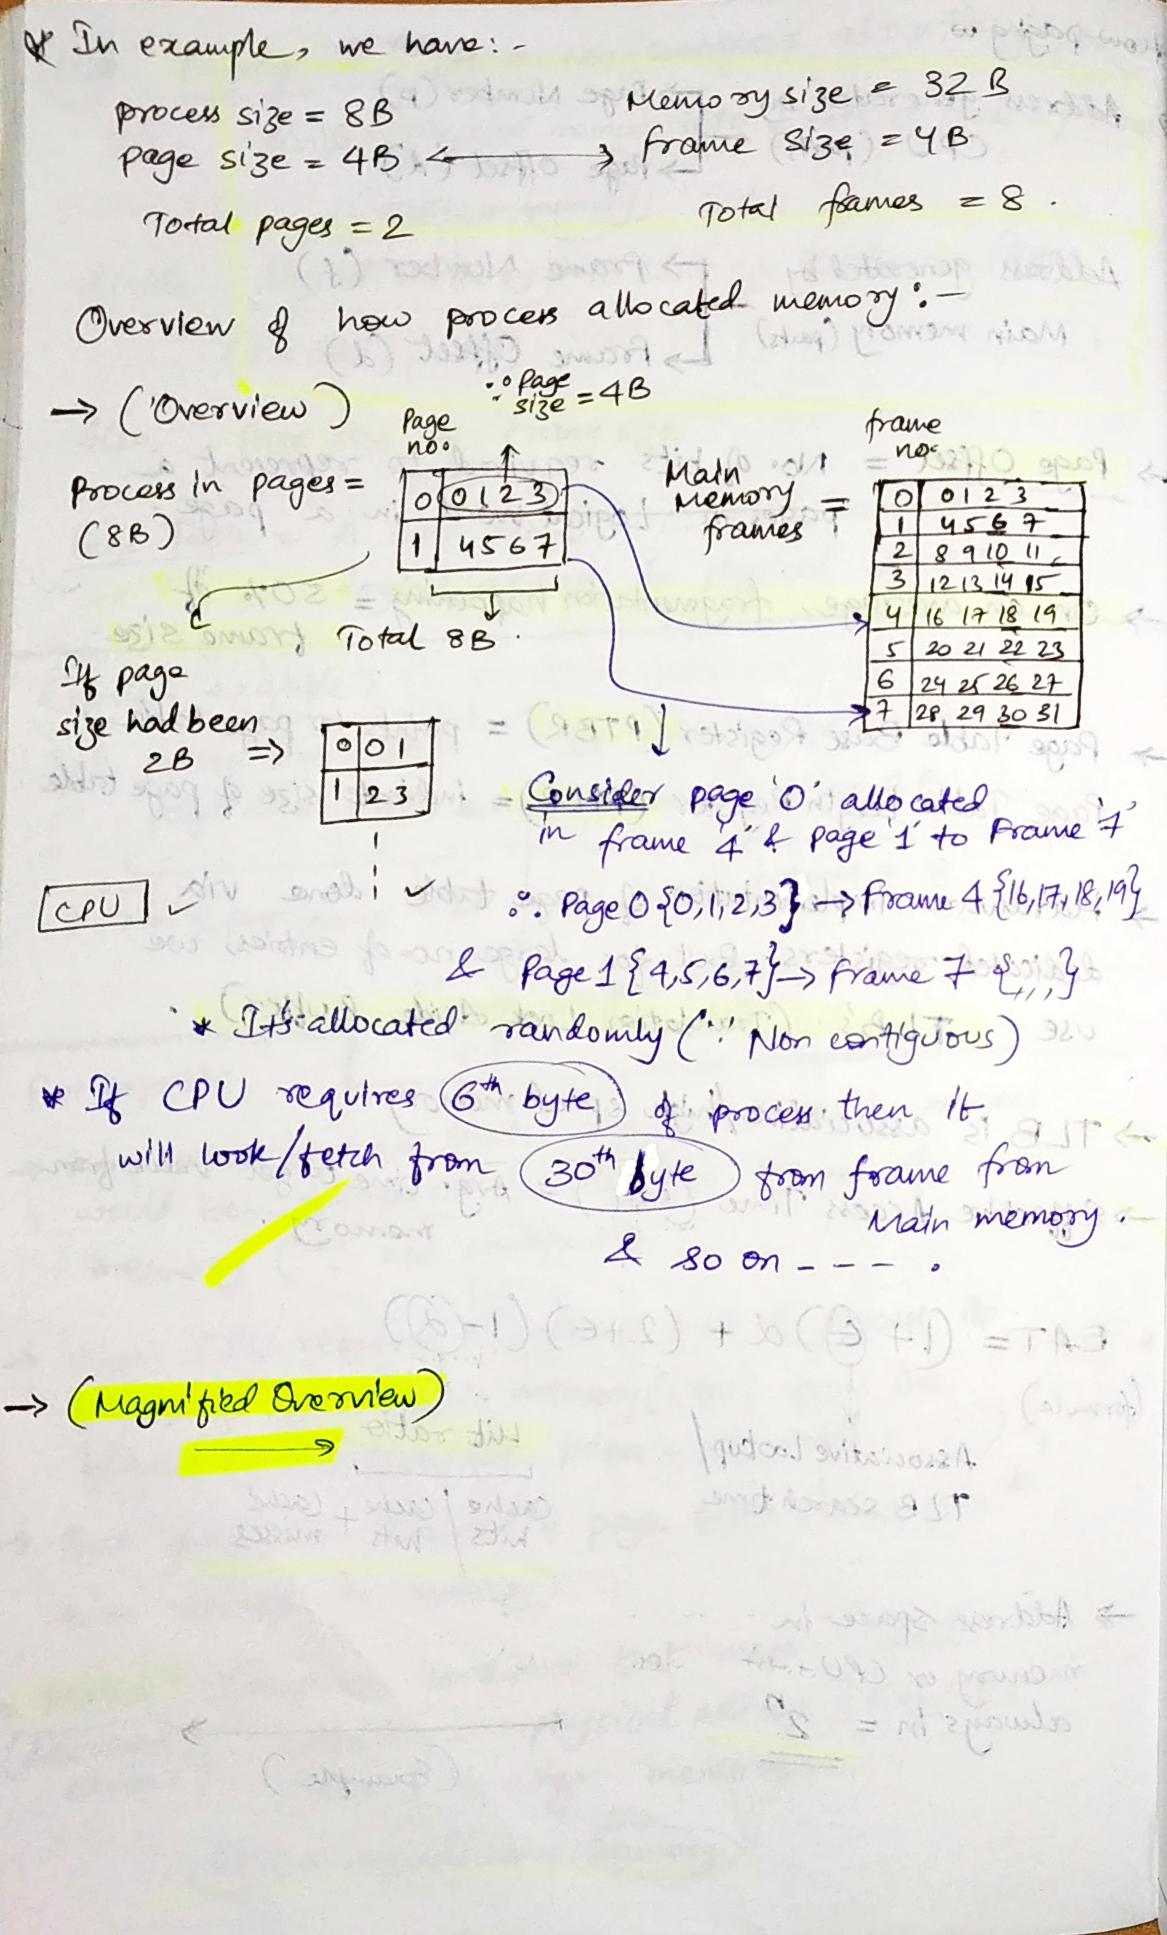 * In example, we have:-
process size = 8B
Memory size = 32 B
page size = 4B <-> frame size = 4B
Total pages = 2
Total frames = 8.
Overview of how process allocated memory:-
→ (Overview)
∵ Page size = 4B
Page no.
frame no.
Process in pages =
(8B)
0 | 0 1 2 3
1 | 4 5 6 7
Total 8B.
Main Memory frames =
0 | 0 1 2 3
1 | 4 5 6 7
2 | 8 9 10 11
3 | 12 13 14 15
4 | 16 17 18 19
5 | 20 21 22 23
6 | 24 25 26 27
7 | 28 29 30 31
If page
size had been
2B ⇒
0 | 0 1
1 | 2 3
Consider page '0' allocated
in frame '4' & page '1' to Frame '7'
CPU
∴ Page 0 {0,1,2,3} → Frame 4 {16,17,18,19}
& Page 1 {4,5,6,7} → Frame 7 {,,,}
* It's allocated randomly (∵ Non contiguous)
* If CPU requires 6th byte of process then it
will look/fetch from 30th byte from frame from
Main memory.
& so on - - - - .
→ (Magnified Overview)